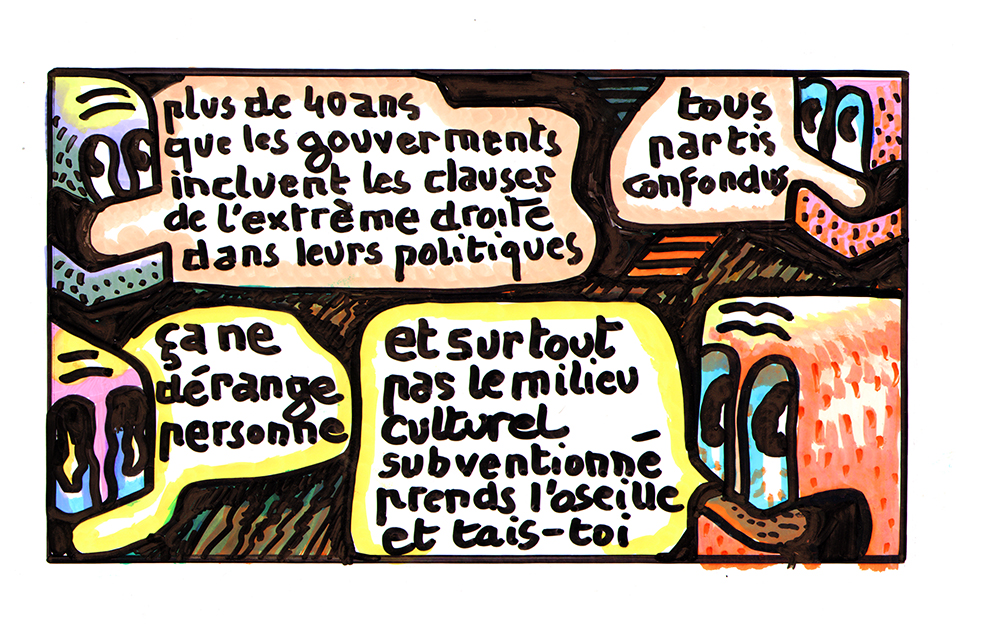 plus de 40 ans
que les gouverments
incluent les clauses
de l'extrème droite
dans leurs politiques
tous
partis
confondus
ça ne
dérange
personne
et surtout
pas le milieu
culturel
subventionné
prends l'oseille
et tais-toi